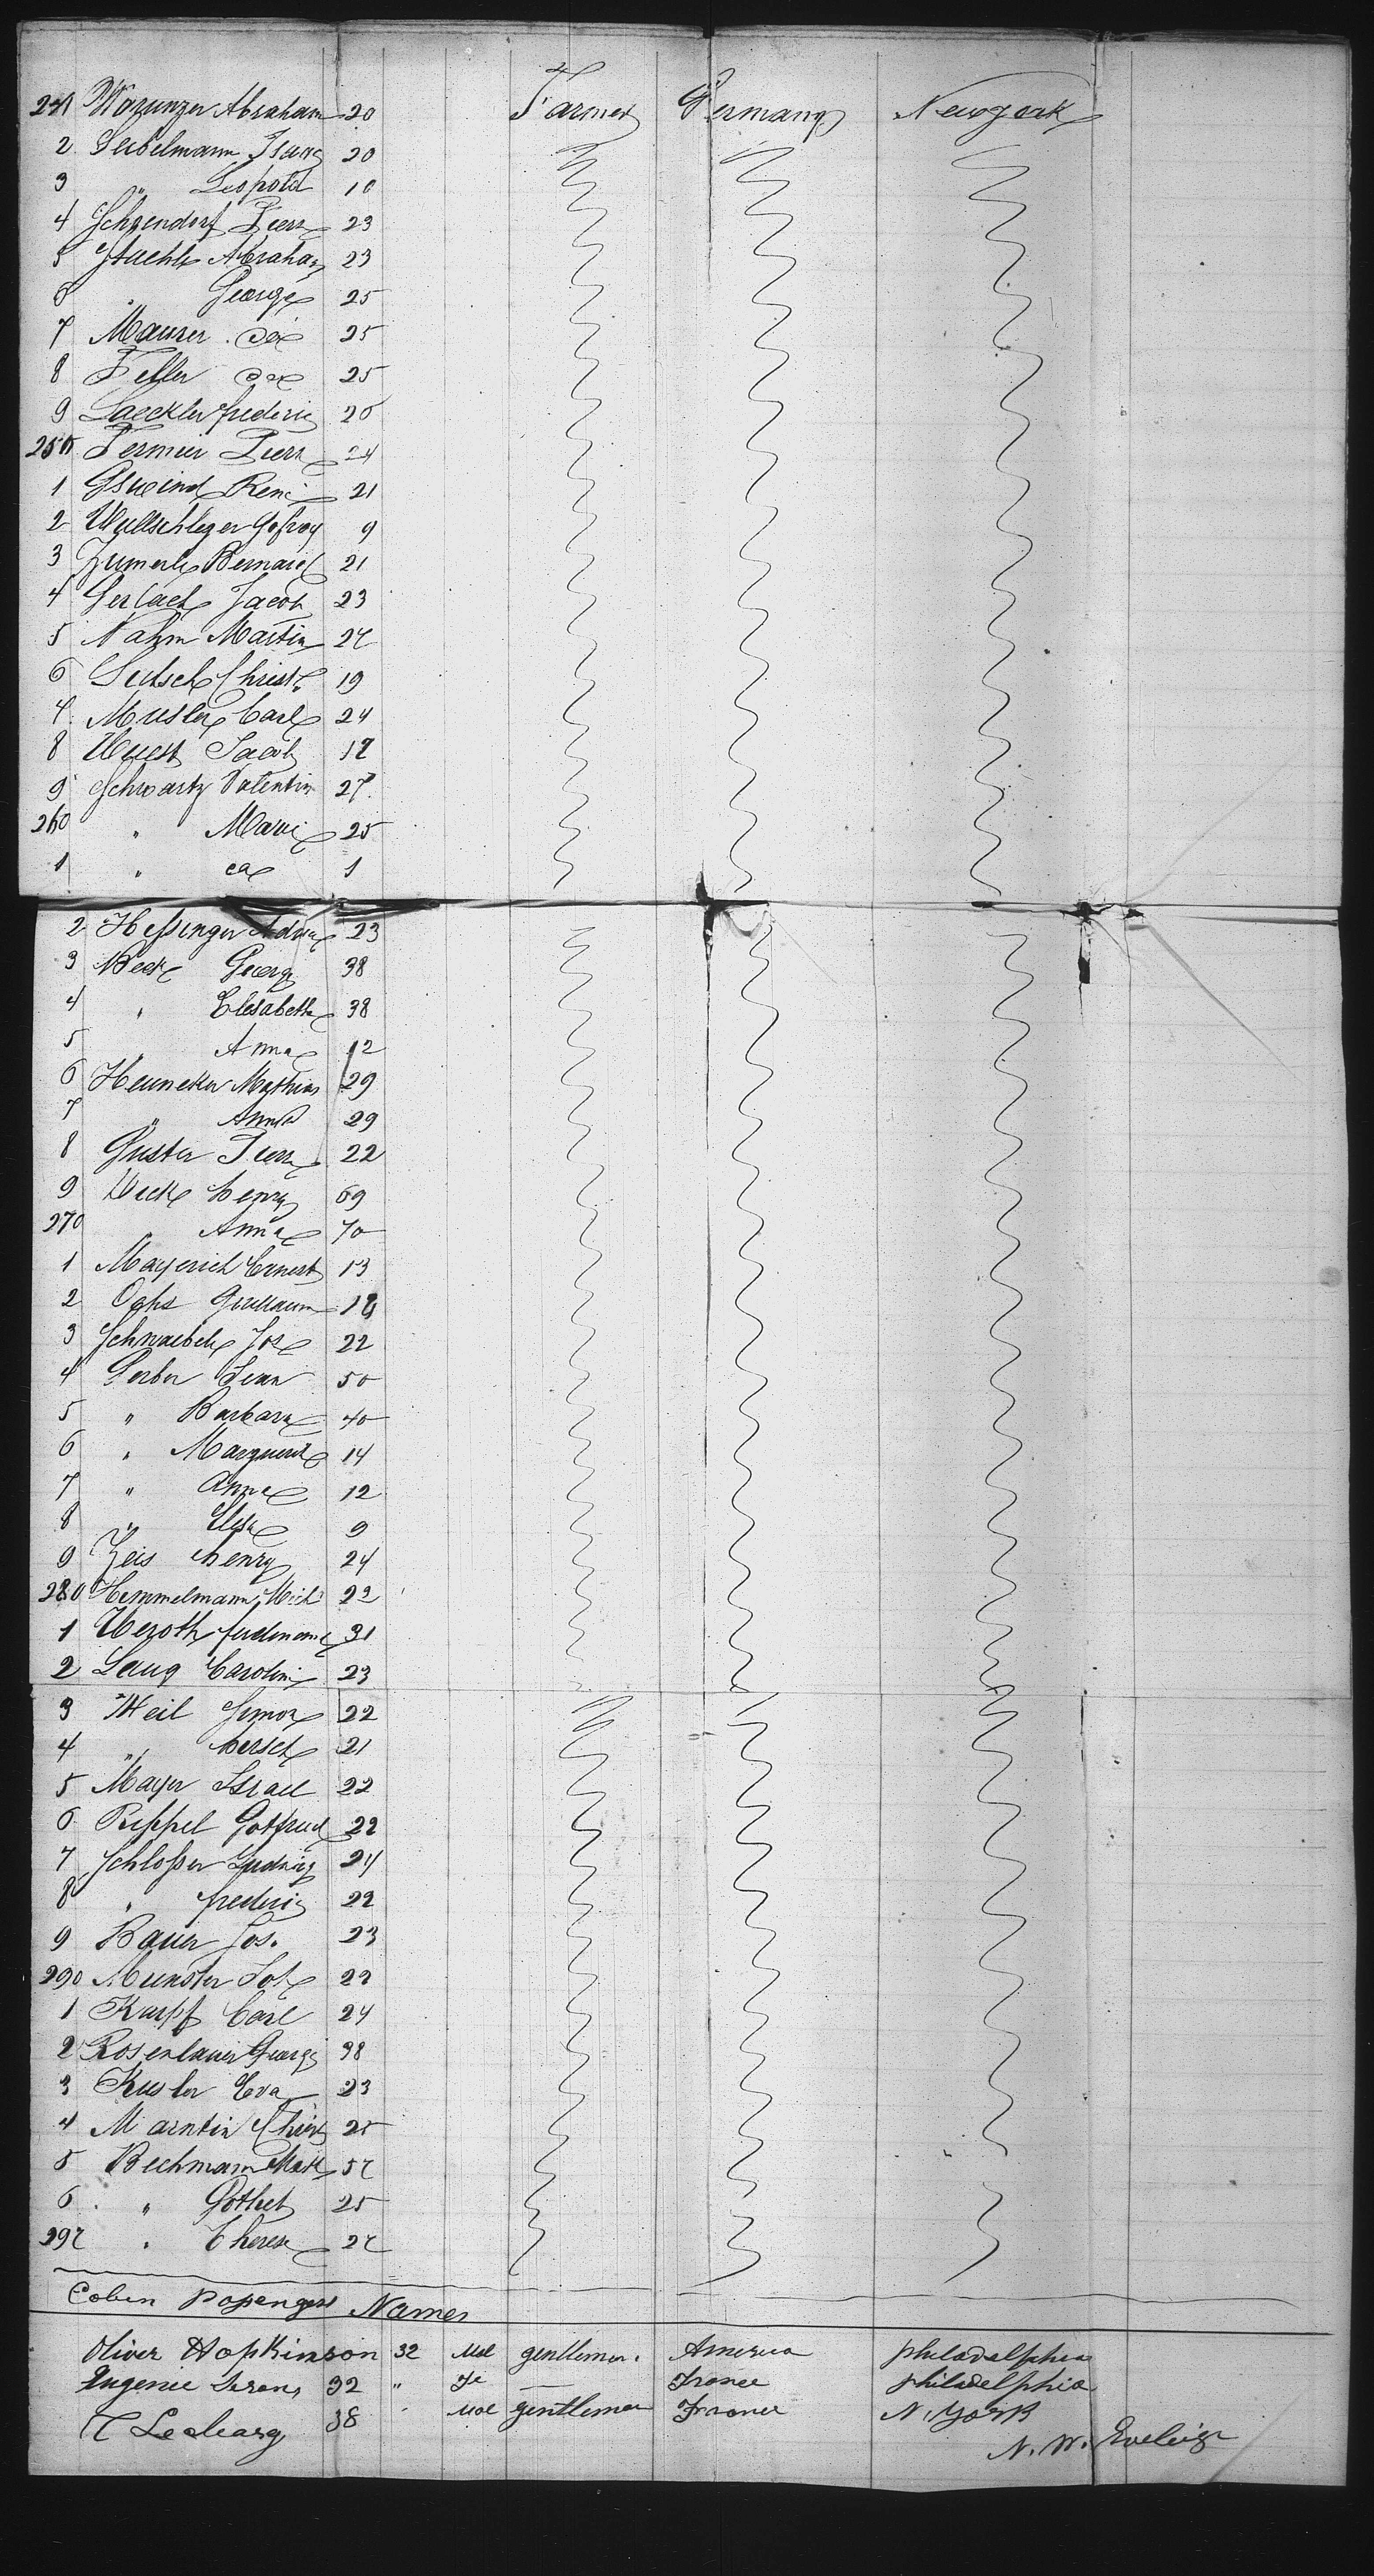 241 Abraham 20 Farmer Germany Newyork
2 Seibelmann Isaac 20
3 " Leopold 10
4 Schzendorf Pierre 23
5 Staehle Abraham 23
6 " George 25
7 Maurer 25
8 Feller 25
9 Laeckler frederic 20
250 Fermier Pierre 24
1 Gsueind René 21
2 Wullschleger Gofroy 9
3 Zumerle Bernard 21
4 Gerlach Jacob 23
5 Nahm Martin 27
6 Christ. 19
7 Musler Carl 24
8 Wuest Jacob
9 Schwartz Valentin 27
260 " Marie 25
1 " 1
2 Heßinger 23
3 Beck Georg 38
4 " Elesabetha 38
5 " Anna 12
6 Henneker Mathias 29
7 " Anna 29
8 Guster Pierre 22
9 Dick henry 69
270 " Anna 70
1 Mayerich Ernest 13
2 Ochs Guillaum
3 Schwaebele Jos 22
4 Gerber Jean 50
5 " Barbara 40
6 " Marguerite 14
7 " Anna 12
8 " Elisa 9
9 Zeis henry 24
280 Hemmelmann Mich 22
1 Weroth ferdinand 31
2 Laug Caroline 23
3 Weil Simon 22
4 " hersch 21
5 Mayer Israel 22
6 Rippel Gotfried 22
7 Schloßer Ludwig 24
8 " frederic 22
9 Bauer Jos. 23
290 Munster 22
1 Karpf Carl 24
2 Rosenlauer George 38
3 Kusler Eva 23
4 Marntin Christ 25
5 Bechmann 57
6 " Gothel 25
297 " Therese 27
Cobin Passengers Names
Oliver Hopkinson 32 Mal gentleman. America philadelphia
Eugenie 32 " Fe — France philadelphia
38 " Mal gentleman France N. York
N. W. Eveleigh